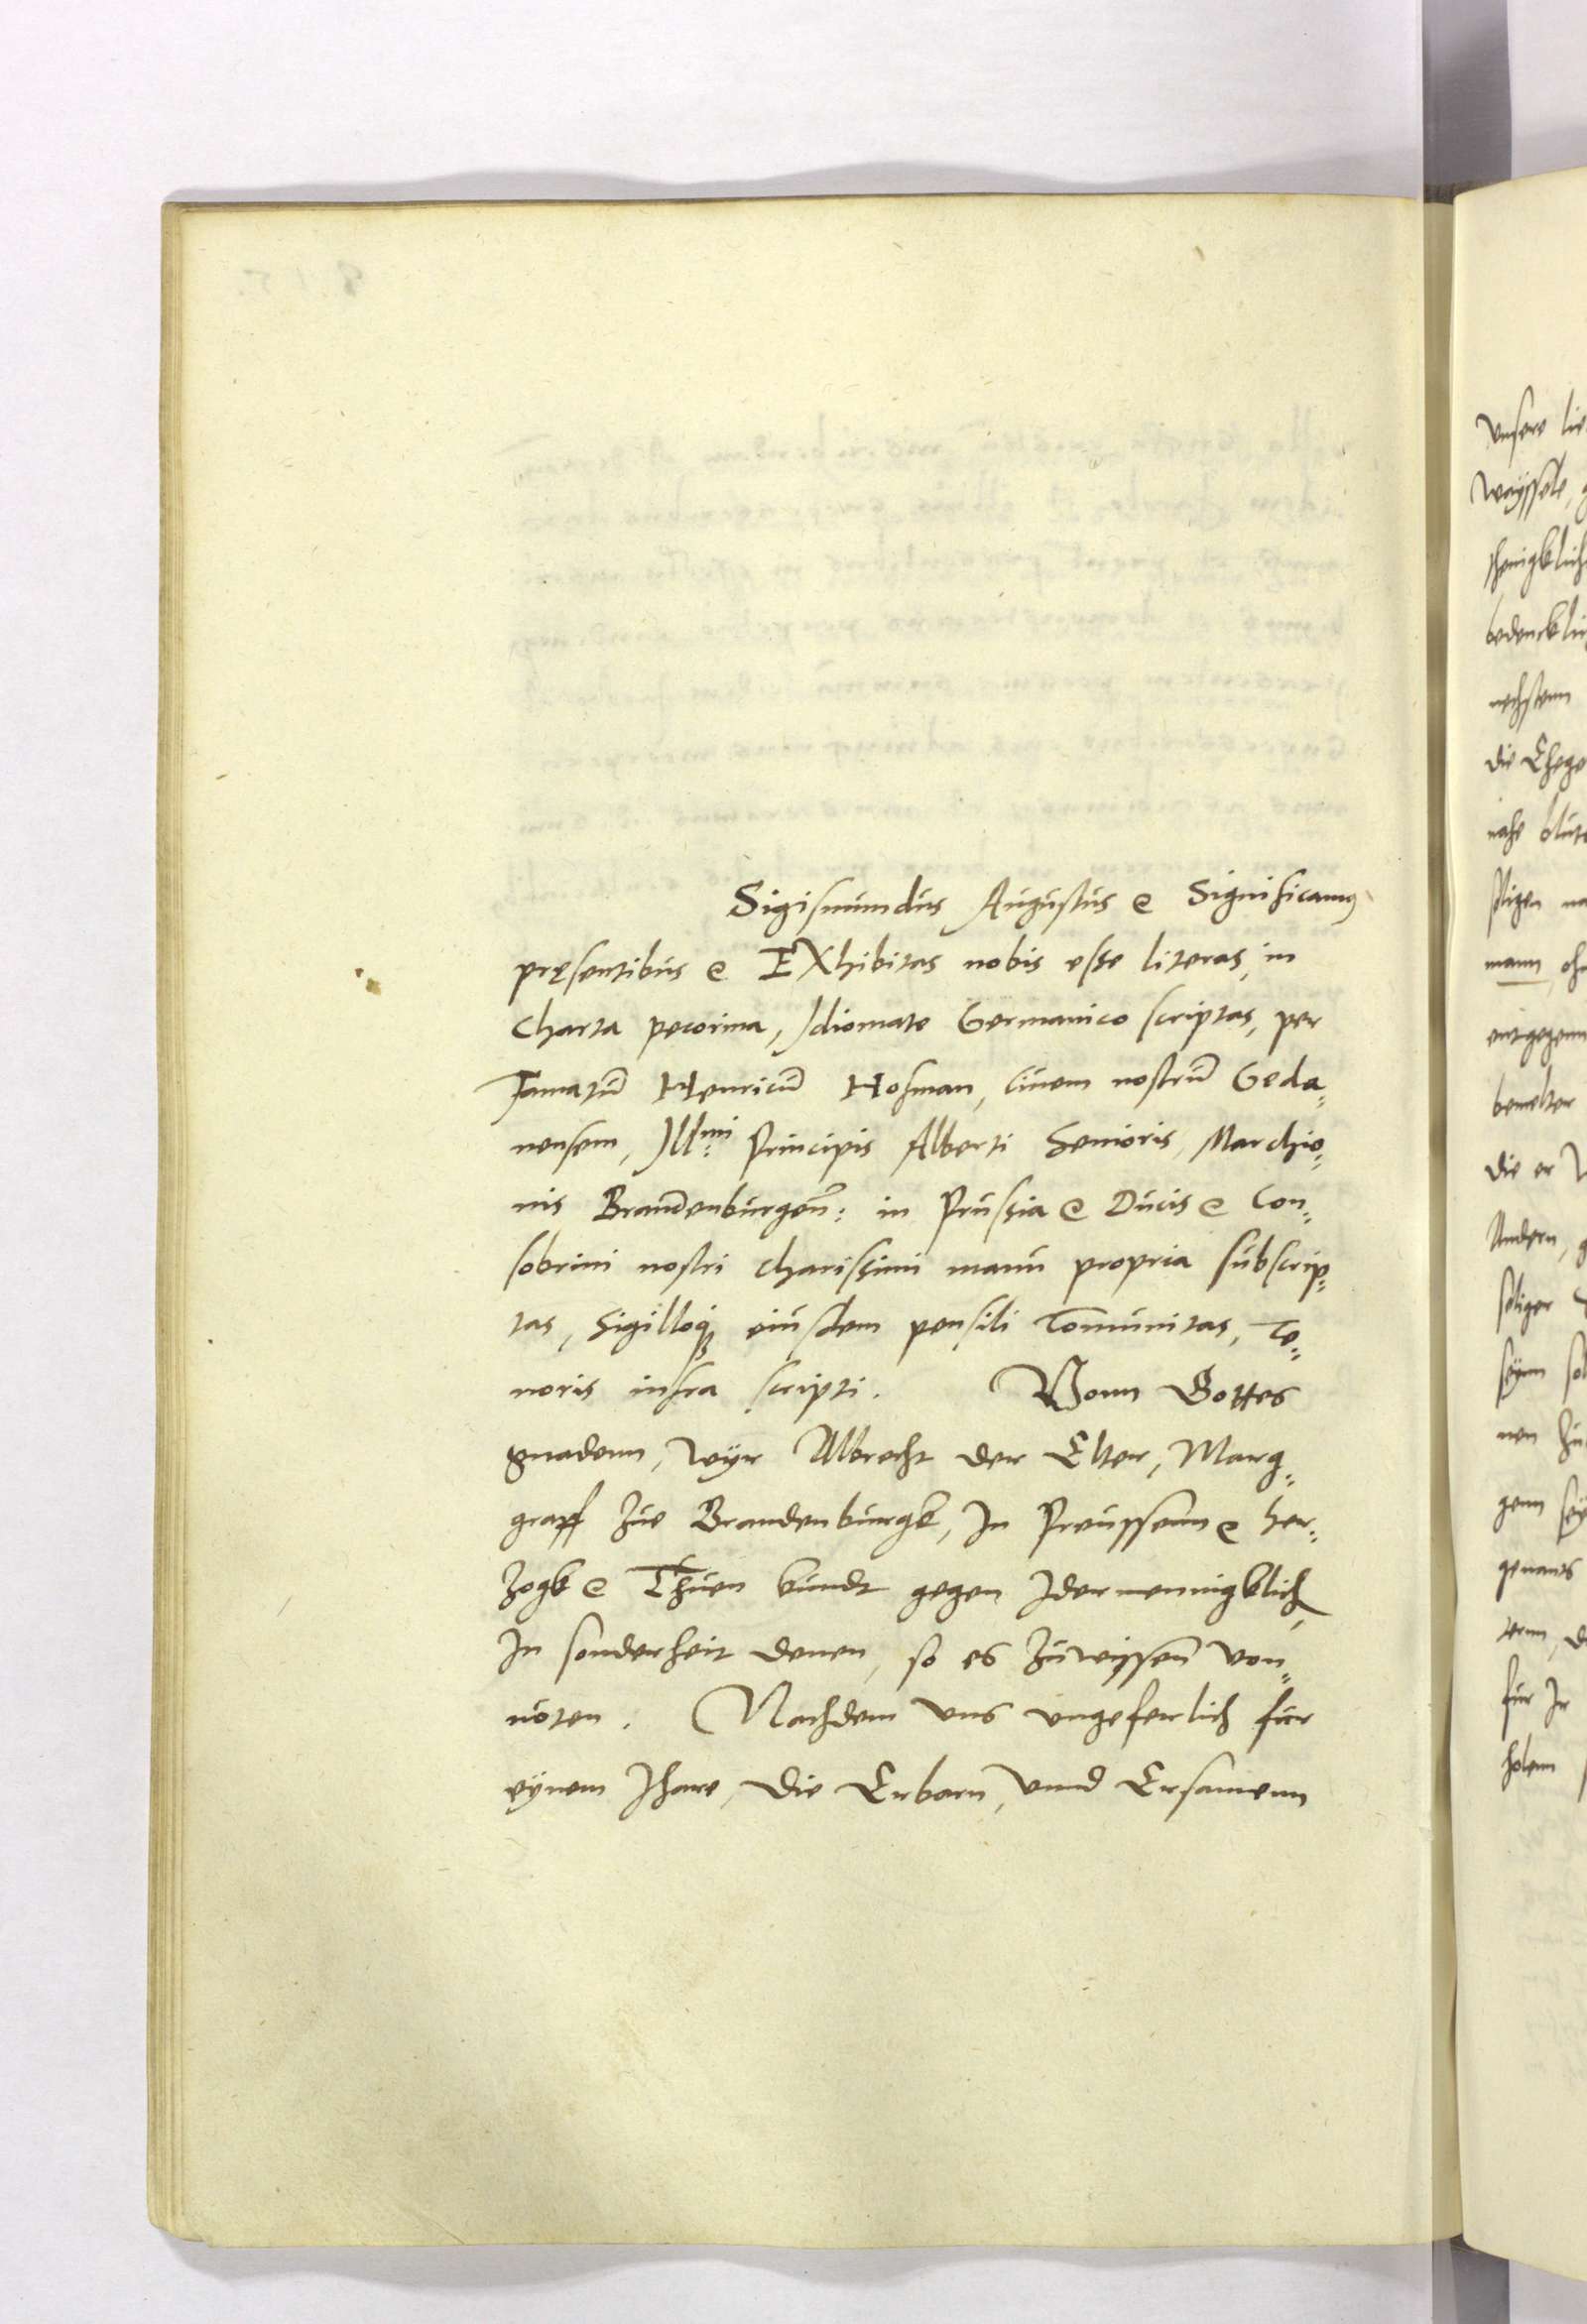 Sigismundus Augustus &c Significamus
pręsentibus &c EXhibitas nobis esse literas, in
Charta pecorina, Idiomate Germanico scriptas, per
Famatũ Henricũ Hofman, Civem nostrũ Geda„
nensem, Illmi Principis Alberti Senioris, Marchio„
nis Brandenburgeñ: in Prussia &c Ducis &c Con„
sobrini nostri charissimi manu propria subscrip„
tas, Sigilloq́ꝫ eiusdem pensili Com̃unitas, Te„
noris infra scripti. Vonn Gottes
gnadenn, Wÿr Albrecht der Elter, Marg„
graff Zue Brandenburgk, In Preussenn &c Her„
Zogk &c Thuen kundt gegen Idermennigklich,
In sonderheit denen, so es Zuwissen̄ von„
nöten. Nachdem vns vngeferlich für
eÿnem Ihare, Die Erbarn, vnnd Ersamenn
vnsere
waÿssete,
nechstenn
die
nahe
mann
entgegenn
bemelter
die er
Andern,
seliger
seÿnn
nen
genn
für Ir